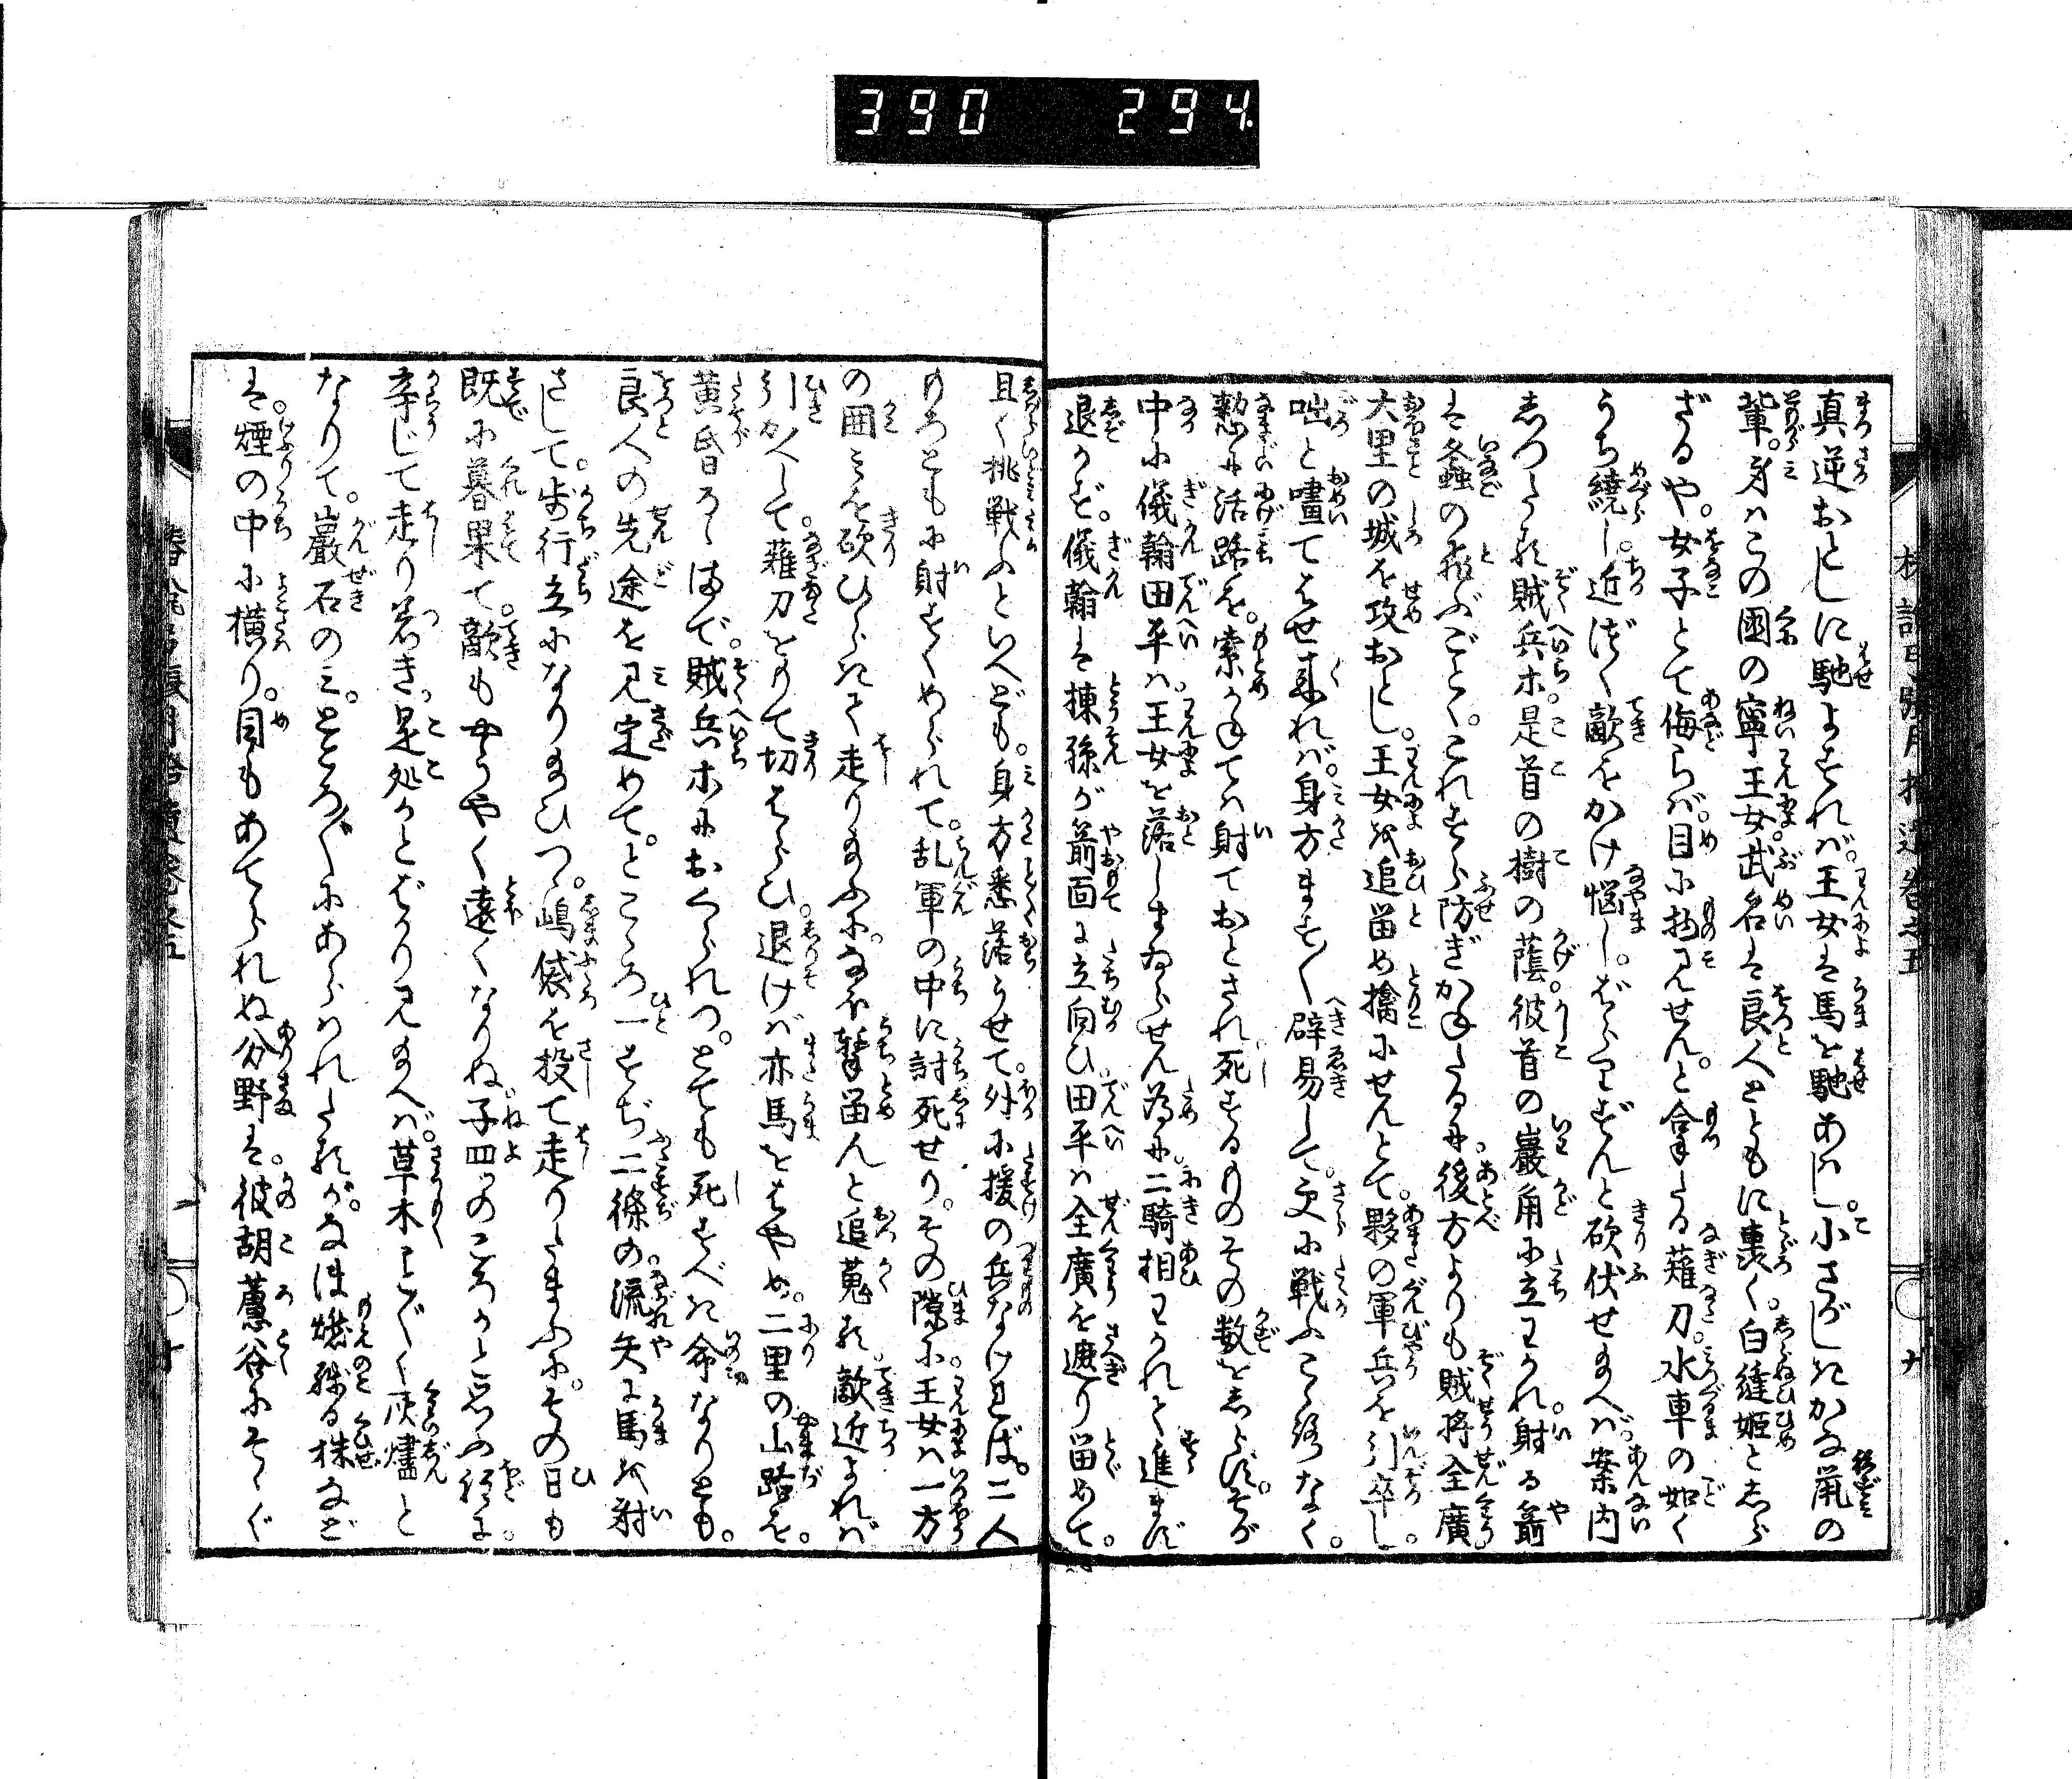 390 294
真逆おとしに馳よすれば。王女は馬を馳あはし。小さかしきかな鼠の
輩。身はこの國の寧王女。武名は良人とともに裏く。白縫姫としら
ざるや。女子とて侮らば。目に物見せん。と合たる薙刀。水車の如く
うち繞し。近づく敵をかけ悩し。ばらりずんと砍伏せ玉へば。案内
しつたる賊兵ホ。是首の樹の蔭。彼首の巌角に立わかれ。射る箭
は螽の飛ぶごとく。これすら防ぎかねたるに。後方よりも賊将全廣。
大里の城を攻おとし。王女を追畄め擒にせんとて。夥の軍兵を引卒し。
咄と嘯てはせ来れば。身方ます〱辟易して。更に戦ふこゝろなく。
憖に活路を。索かねては射ておとされ。死するものその数をしらず。そが
中に儀翰田平は。王女を落しまゐらせん為に。二騎相わかれて進まず
退かず。儀翰は揀孫が箭面に立向ひ。田平は全廣を遮り畄めて。
且く挑戦ふといへども。身方悉落うせて。外に援の兵なければ。二人
のものともに射すくめられて。乱軍の中に討死せり。その隙に王女は一方
の囲みを砍ひらきて走り玉ふに。なほ撃畄んと追蒐る。敵近よれば
引かへして。薙刀をもて切はらひ。退けば亦馬をはやめ。二里の山路を。
黄昏るゝまで。賊兵ホにおくられつ。とても死すべき命なりとも。
良人の先途を見定めて。ところ一すぢ二條の流矢に馬を射
さして。歩行立になり玉ひつ。嶋袋を投て走りたまふに。その日も
既に暮果て。敵もやうやく遠くなりね。子四つのころかと思ふ程に。
辛じて走り着き。是処かとばかり見玉へば。草木こと〲く灰燼と
なりて。巌石のみ。ところ〲にあらはれたるが。なほ燃殘る株など
は。煙の中に横り。目もあてられぬ分野は。彼胡蘆谷にそゝぐ